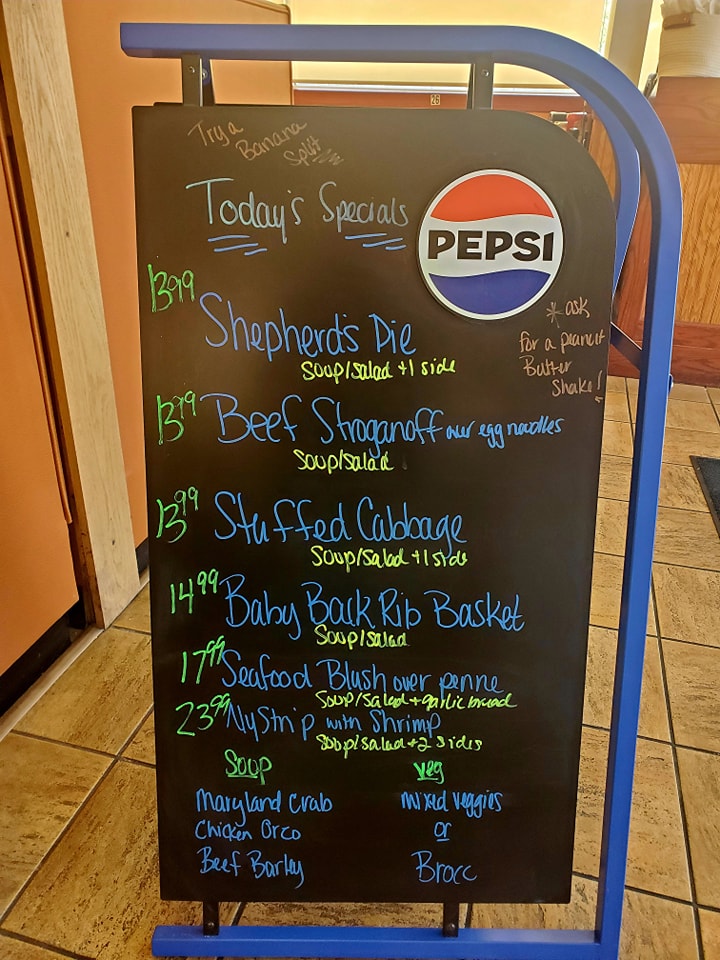 26
Try a
Banana
Split
Today's Specials
PEPSI
*ask
for a peanut
Butter
Shake!
13.99
Shepherd's Pie
Soup/salad +1 side
13.99 Beef Stroganoff over egg noodles
Soup/salad
13.99 Stuffed Cabbage
Soup/salad +1 side
14.99 Baby Back Rib Basket
Soup/salad
17.99 Seafood Blush over penne
Soup/salad + garlic bread
23.99 Ny Strip with Shrimp
Soup/salad + 2 sides
Soup
Maryland Crab
Chicken Orzo
Beef Barley
Veg
mixed veggies
or
Brocc